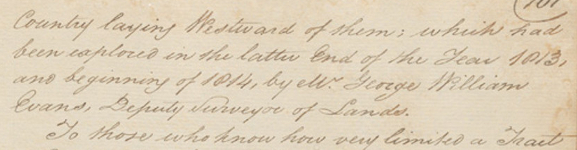 101
Country laying Westward of them; which had
been explored in the latter End of the Year 1813,
and beginning of 1814, by Mr. George William
Evans, Deputy Surveyor of Lands.
To those who know how very limited a Tract